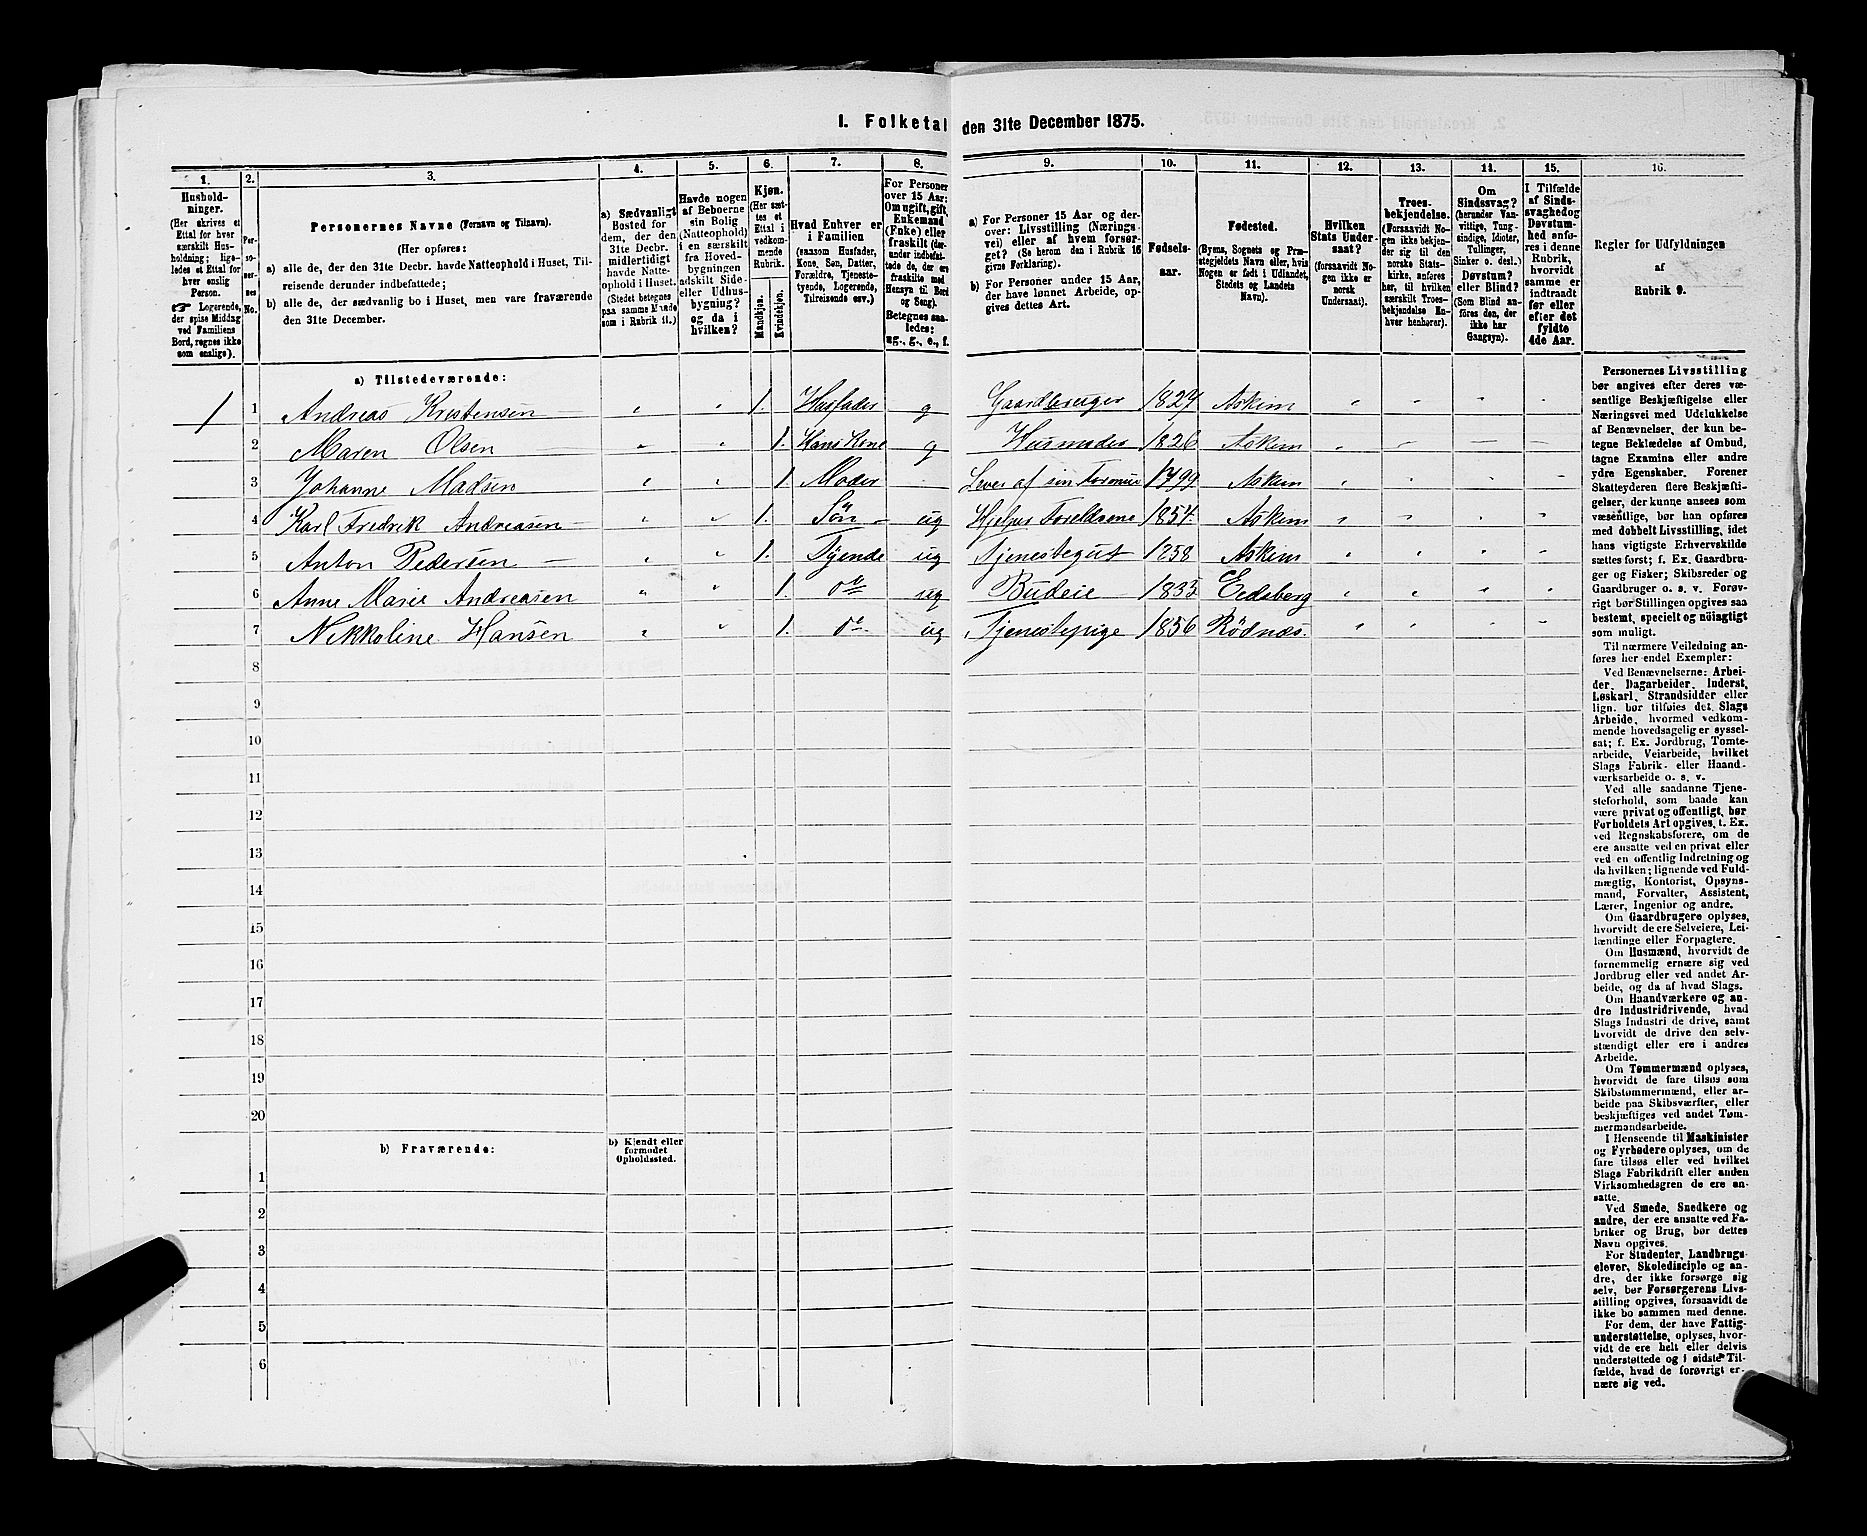 1. Folketal den 31te December 1875.
1.
Hushold-
ninger.
(Her skrives et
Ettal for hver
særskilt Hus-
holdning; lige-
ledes et Ettal for
hver enslig
Person.
☞ Logerende,
der spise Middag
ved Familiens
Bord, regnes ikke
som enslige).
2.
Per-
so-
ner-
nes
No.
3.
Personernes Navne (Fornavn og Tilnavn).
(Her opføres:
a) alle de, der den 31te Decbr. havde Natteophold i Huset, Til-
reisende derunder indbefattede;
b) alle de, der sædvanlig bo i Huset, men vare fraværende
den 31te December.
4.
a) Sædvanligt
Bosted for
dem, der den
31te Decbr.
midlertidigt
havde Natte-
ophold i Huset.
(Stedet betegnes
paa samme Maade
som i Rubrik 11.)
5.
Havde nogen
af Beboerne
sin Bolig
(Natteophold)
i en særskilt
fra Hoved-
bygningen
adskilt Side-
eller Udhus-
bygning?
og da i
hvilken?
6.
Kjøn.
(Her sæt-
tes et
Ettal i
vedkom-
mende
Rubrik.
Mandkjøn.
Kvindekjøn.
7.
Hvad Enhver er
i Familien
(saasom Husfader,
Kone, Søn, Datter,
Forældre, Tjeneste-
tyende, Logerende,
Tilreisende osv.)
8.
For Personer
over 15 Aar:
Om ugift, gift,
Enkemand
(Enke) eller
fraskilt (der-
under indbefat-
tede de, der ere
fraskilte med
Hensyn til Bord
og Seng).
Betegnes saa-
ledes:
ug., g., e., f.
9.
a) For Personer 15 Aar og der-
over: Livsstilling (Nærings-
vei) eller af hvem forsør-
get? (Se herom den i Rubrik 16
givne Forklaring).
b) For Personer under 15 Aar,
der have lønnet Arbeide, op-
gives dettes Art.
10.
Fødsels-
aar.
11.
Fødested.
(Byens, Sognets og Præ-
stegjeldets Navn eller, hvis
Nogen er født i Udlandet,
Stedets og Landets
Navn).
12.
Hvilken
Stats Under-
saat?
(forsaavidt No-
gen ikke er
norsk
Undersaat).
13.
Troes-
bekjendelse.
(Forsaavidt No-
gen ikke bekjen-
der sig til den
norske Stats-
kirke, anføres
her, til hvilken
særskilt Troes-
bekjendelse En-
hver henhører).
14.
Om
Sindssvag?
(herunder Van-
vittige, Tung-
sindige, Idioter,
Tullinger,
Sinker o. desl.)
Døvstum?
eller Blind?
(Som Blind an-
føres den, der
ikke har
Gangsyn).
15.
I Tilfælde
af Sinds-
svaghed og
Døvstum-
hed anfø-
res i denne
Rubrik,
hvorvidt
samme er
indtraadt
før eller
efter det
fyldte
4de Aar.
16.
Regler for Udfyldningen
af
Rubrik 9.
a) Tilstedeværende:
1 1 Andreas Kristensen " " 1. Husfader g Gaardbruger 1827 Askim " " " "
2 Maren Olsen " " 1. Hans Kone g Husmoder 1826 Askim
3 Johanne Madsen " " 1 Moder Lever af sin Formue 1799 Askim " " " "
4 Karl Fredrik Andreasen " " 1. Søn ug Hjelper Foreldrene 1854 Askim " " " "
5 Anton Pedersen " " 1. Tyende ug Tjenestegut 1858 Askim " " " "
6 Anne Marie Andreasen " " 1. do ug Budeie 1833 Eidsberg " " " "
7 Nekkoline Hansen " " 1. do ug Tjenestepige 1856 Rödnæs. " " " "
8
9
10
11
12
13
14
15
16
17
18
19
20
b) Fraværende:
b) Kjendt eller
formodet
Opholdssted.
1
2
3
4
5
6
Personernes Livsstilling
bør angives efter deres væ-
sentlige Beskjæftigelse eller
Næringsvei med Udelukkelse
af Benævnelser, der kun be-
tegne Beklædelse af Ombud,
tagne Examina eller andre
ydre Egenskaber. Forener
Skatteyderen flere Beskjæfti-
gelser, der kunne ansees som
væsentlige, bør han opføres
med dobbelt Livsstilling, idet
hans vigtigste Erhvervskilde
sættes først; f. Ex. Gaardbru-
ger og Fisker; Skibsreder og
Gaardbruger o. s. v. Forøv-
rigt bør Stillingen opgives saa
bestemt, specielt og nöiagtigt
som muligt.
Til nærmere Veiledning an-
føres her endel Exempler:
Ved Benævnelserne: Arbei-
der, Dagarbeider, Inderst,
Løskarl, Strandsidder eller
lign. bør tilføies det Slags
Arbeide, hvormed vedkom-
mende hovedsagelig er syssel-
sat; f. Ex. Jordbrug, Tomte-
arbeide, Veiarbeide, hvilket
Slags Fabrik- eller Haand-
værksarbeide o. s. v.
Ved alle saadanne Tjene-
steforhold, som baade kan
være privat og offentligt, bør
Forholdets Art opgives, t. Ex.
ved Regnskabsførere, om de
ere ansatte ved en privat eller
ved en offentlig Indretning og
da hvilken; lignende ved Fuld-
mægtig, Kontorist, Opsyns-
mand, Forvalter, Assistent,
Lærer, Ingeniør og andre.
Om Gaardbrugere oplyses,
hvorvidt de ere Selveiere, Lei-
lændinge eller Forpagtere.
Om Husmænd, hvorvidt de
fornemmelig ernære sig ved
Jordbrug eller ved andet Ar-
beide, og da af hvad Slags.
Om Haandværkere og an-
dre Industridrivende, hvad
Slags Industri de drive, samt
hvorvidt de drive den selv-
stændigt eller ere i andres
Arbeide.
Om Tømmermænd oplyses,
hvorvidt de fare tilsøs som
Skibstømmermænd, eller ar-
beide paa Skibsværfter, eller
beskjæftiges ved andet Tøm-
mermandsarbeide.
I Henseende til Maskinister
og Fyrbødere oplyses, om de
fare tilsøs eller ved hvilket
Slags Fabrikdrift eller anden
Virksomhedsgren de ere an-
satte.
Ved Smede, Snedkere og
andre, der ere ansatte ved Fa-
briker og Brug, bør dettes
Navn opgives.
For Studenter, Landbrugs-
elever, Skoledisciple og an-
dre, der ikke forsørge sig
selv, bør Forsørgerens Livs-
stilling opgives, forsaavidt de
ikke bo sammen med denne.
For dem, der have Fattig-
understøttelse, oplyses, hvor-
vidt de ere helt eller delvis
understøttede og i sidste Til-
fælde, hvad de forøvrigt er-
nære sig ved.